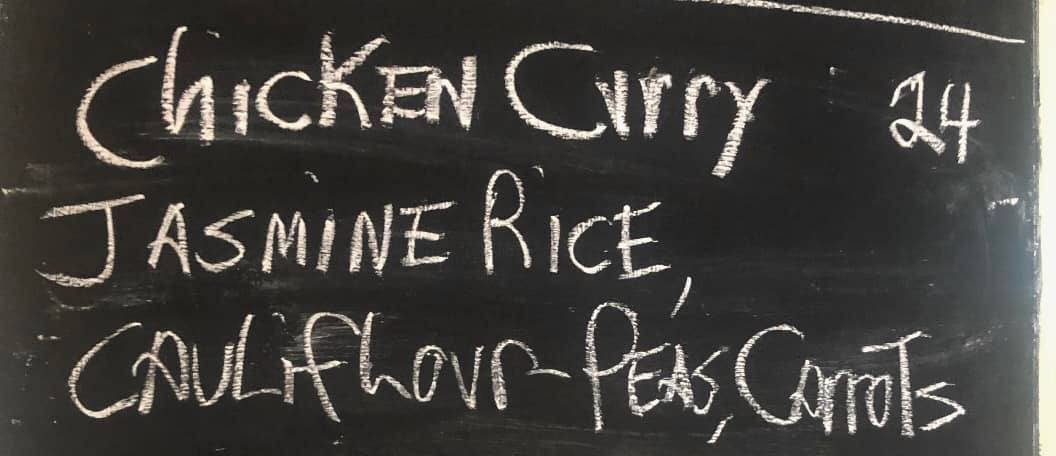 Chicken Curry 24
Jasmine Rice,
Cauliflour Peas, Carrots